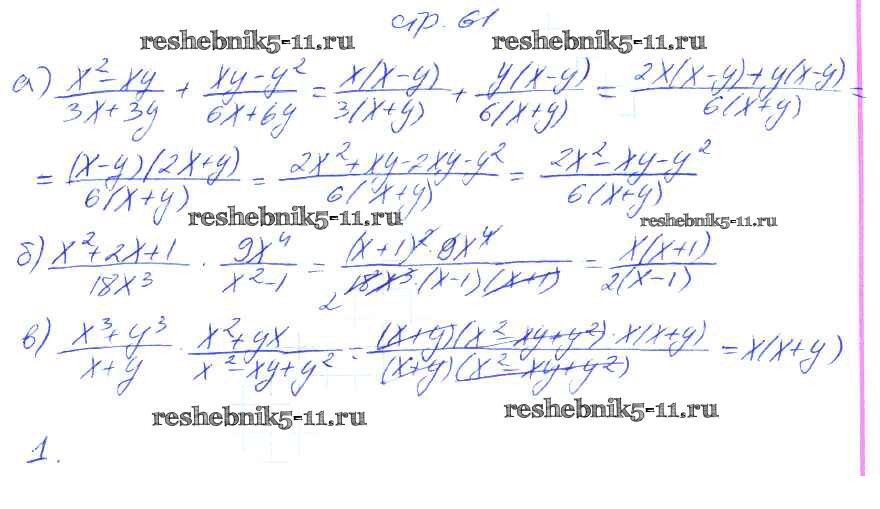 стр. 61
reshebnik5-11.ru reshebnik5-11.ru
а) (x² - xy)/(3x + 3y) + (xy - y²)/(6x + 6y) = x(x - y)/3(x + y) + y(x - y)/6(x + y) = (2x(x - y) + y(x - y))/6(x + y) =
= (x - y)(2x + y)/6(x + y) = (2x² + xy - 2xy - y²)/6(x + y) = (2x² - xy - y²)/6(x + y)
reshebnik5-11.ru reshebnik5-11.ru
б) (x² + 2x + 1)/18x³ · 9x⁴/(x² - 1) = (x + 1)² · 9x⁴/18x³ · (x - 1)(x + 1) = x(x + 1)/2(x - 1)
2
в) (x³ + y³)/(x + y) · (x² + yx)/(x² - xy + y²) = (x + y)(x² - xy + y²) · x(x + y)/(x + y)(x² - xy + y²) = x(x + y)
reshebnik5-11.ru reshebnik5-11.ru
1.